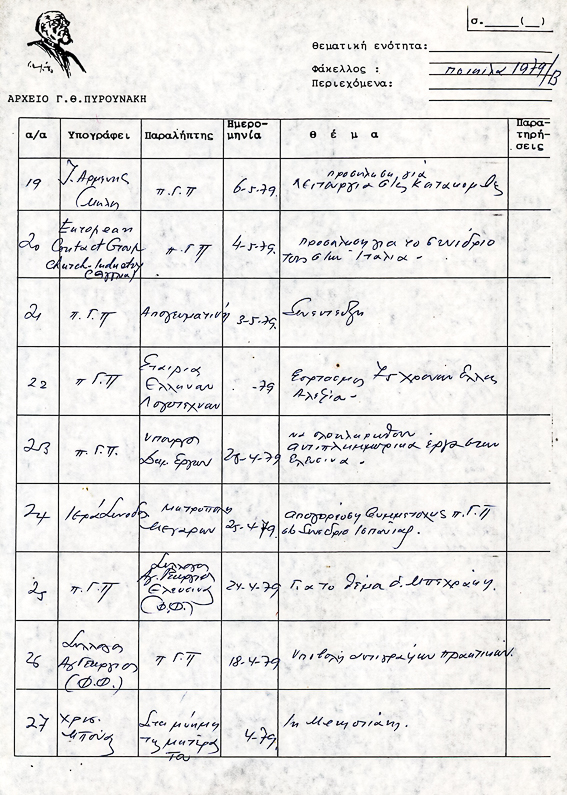 σ.____(__)
Θεματική ενότητα:
Φάκελλος : ποικιλα 1979/Β
Περιεχόμενα:
ΑΡΧΕΙΟ Γ.Θ.ΠΥΡΟΥΝΑΚΗ
α/α Υπογράφει Παραλήπτης Ημερο-μηνία θ έ μ α Παρα-τηρή-σεις
19 π.Γ.π 6-5-79 προσκληση για
Λειτουργια στις Κατακομβες
20 European
Contact Group π.Γ.π 4-5-79. προσκληση για το συνεδριο
Church-Industry τους στην Ιταλια -
21 π.Γ.π Απογευματινή 3-5-79. Συνεντευξη
22 π Γ.π Εταιρια
Ελληναν
Λογοτεχναν -79 Εορτασμος 75 χρονων Ελλης
Αλεξια -
23 π.Γ.π. υπουργο
Δημ Εργων 28-4-79 να ολοκληρωθουν
αντιπλημμυρικα εργα στην
Ελευσινα -
24 Ιερά Συνοδο Μητροπολη
Μεγαρων 25-4-79 απαγορευση συμμετοχης π.Γ.π
σε Συνεδριο Ισπανιας.
25 π.Γ.π Συλλογο
Αγ. Γεωργιος
Ελευσινα
(Φ.Φ.) 24-4-79 Για το θεμα δ. Μπεχρακη.
26 Συλλογο
Αγ Γεωργιος
(Φ.Φ.) π Γ.π 18-4-79 υποβολη αντιγραφων πρακτικων.
27 Χρισ.
Μπουα Στη μνημη
της μητερα
του 4-79.